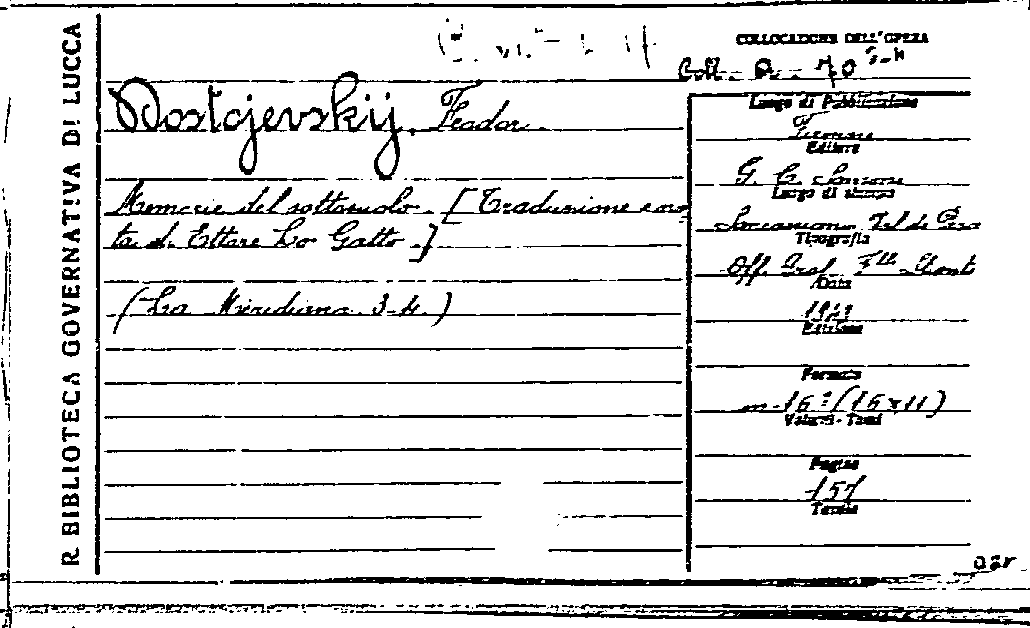 R. BIBLIOTECA GOVERNATIVA DI LUCCA
COLLOCAZIONE DELL'OPERA
Coll. 70
Dostojevskij, Feador.
Memorie del sottosuolo. [Traduzione e no
ta di Ettore Lo Gatto.]
(La Meridiana 3-4.)
Luogo di Pubblicazione
Firenze
Editore
G. C. Sansoni
Luogo di stampa
Tipografia
Off. Graf. F.lli Stianti
Data
Edizione
Formato
in-16° (16x11)
Volumi - Tomi
Pagine
157
Tavole